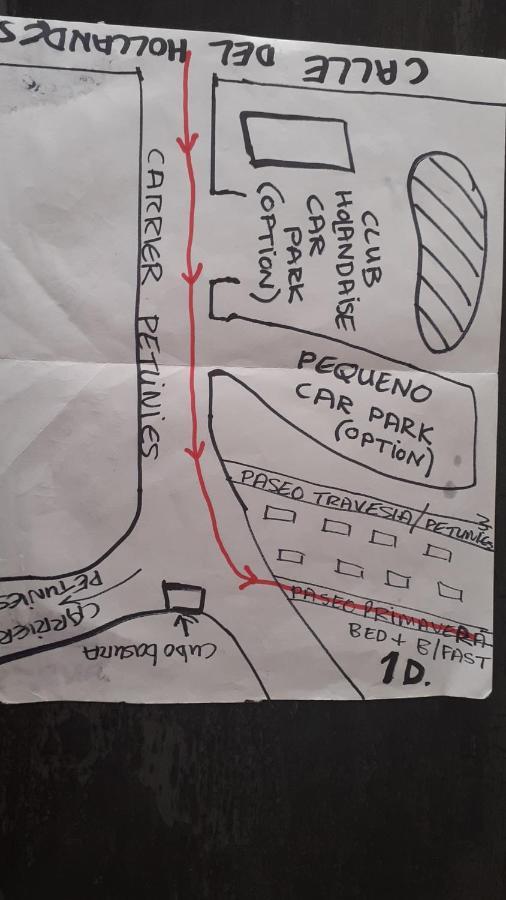 CALLE DEL HOLLANDES
CARRIER PETUNIES
CLUB
HOLANDAISE
CAR
PARK
(OPTION)
PEQUENO
CAR PARK
(OPTION)
PASEO TRAVESIA/PETUNIES
3
PASEO PRIMAVERA
BED + B/FAST
1D.
CARRIER
PETUNIES
Cubo basura